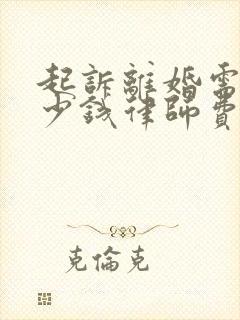 起訴離婚需
少錢律師費
克倫克